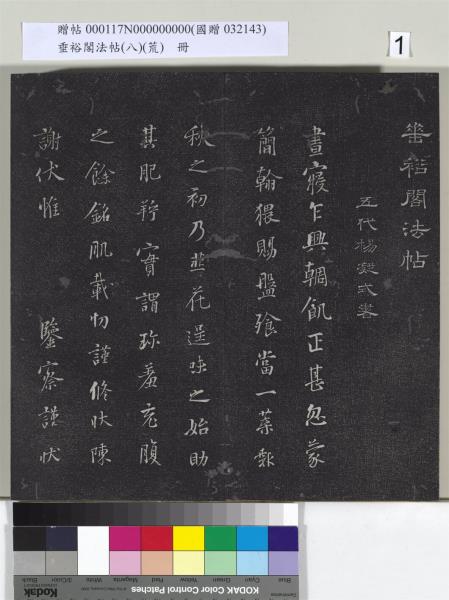 贈帖 000117N000000000(國贈 032143)
垂裕閣法帖(八)(荒) 冊
1
垂裕閣法帖
五代楊凝式書
晝寢乍興輖飢正甚忽蒙
簡翰猥賜盤飧當一葉報
秋之初乃韭花逞味之始助
其肥羜實謂珍羞充腹
之餘銘肌載切謹修狀陳
謝伏惟 鑒察謹狀
KODAK Color Control Patches
Blue Cyan Green Yellow Red Magenta White 3/Color Black
Kodak